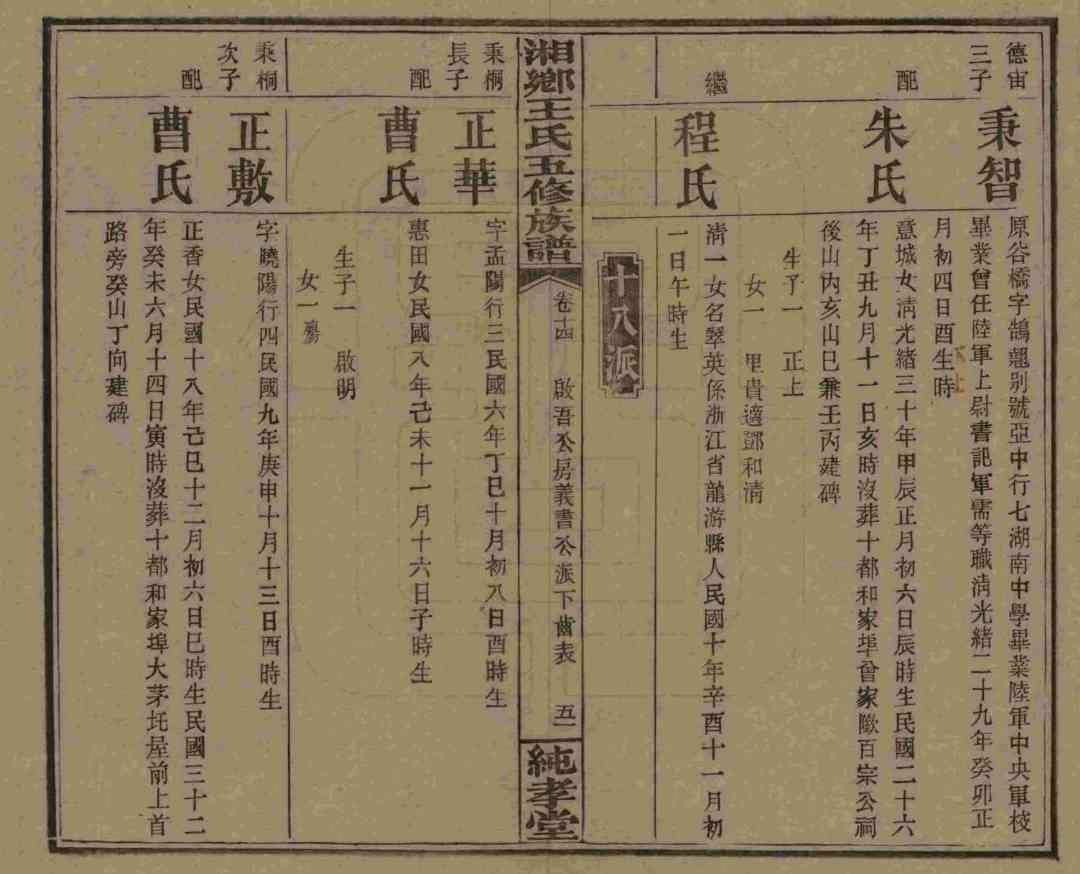 德宙
三子
秉智
原谷橋字鵠翹別號亞中行七湖南中學畢業陸軍中央軍校
畢業曾任陸軍上尉書記軍需等職淸光緒二十九年癸卯正
月初四日酉生時
配
朱氏
意城女淸光緒三十年甲辰正月初六日辰時生民國二十六
年丁丑九月十一日亥時沒葬十都和家埠曾家歐百宗公祠
後山內亥山巳兼壬丙建碑
生子一 正上
女一 里貴適鄧和淸
繼
程氏
淸一女名翠英係浙江省龍游縣人民國十年辛酉十一月初
一日午時生
十八派
湘鄉王氏五修族譜
卷十四
啟吾公房義書公派下齒表
五一
純孝堂
秉桐
長子
正華
字孟陽行三民國六年丁巳十月初八日酉時生
配
曹氏
惠田女民國八年己未十一月十六日子時生
生子一 啟明
女一 殤
秉桐
次子
正敷
字曉陽行四民國九年庚申十月十三日酉時生
配
曹氏
正香女民國十八年己巳十二月初六日巳時生民國三十二
年癸未六月十四日寅時沒葬十都和家埠大茅坵屋前上首
路旁癸山丁向建碑